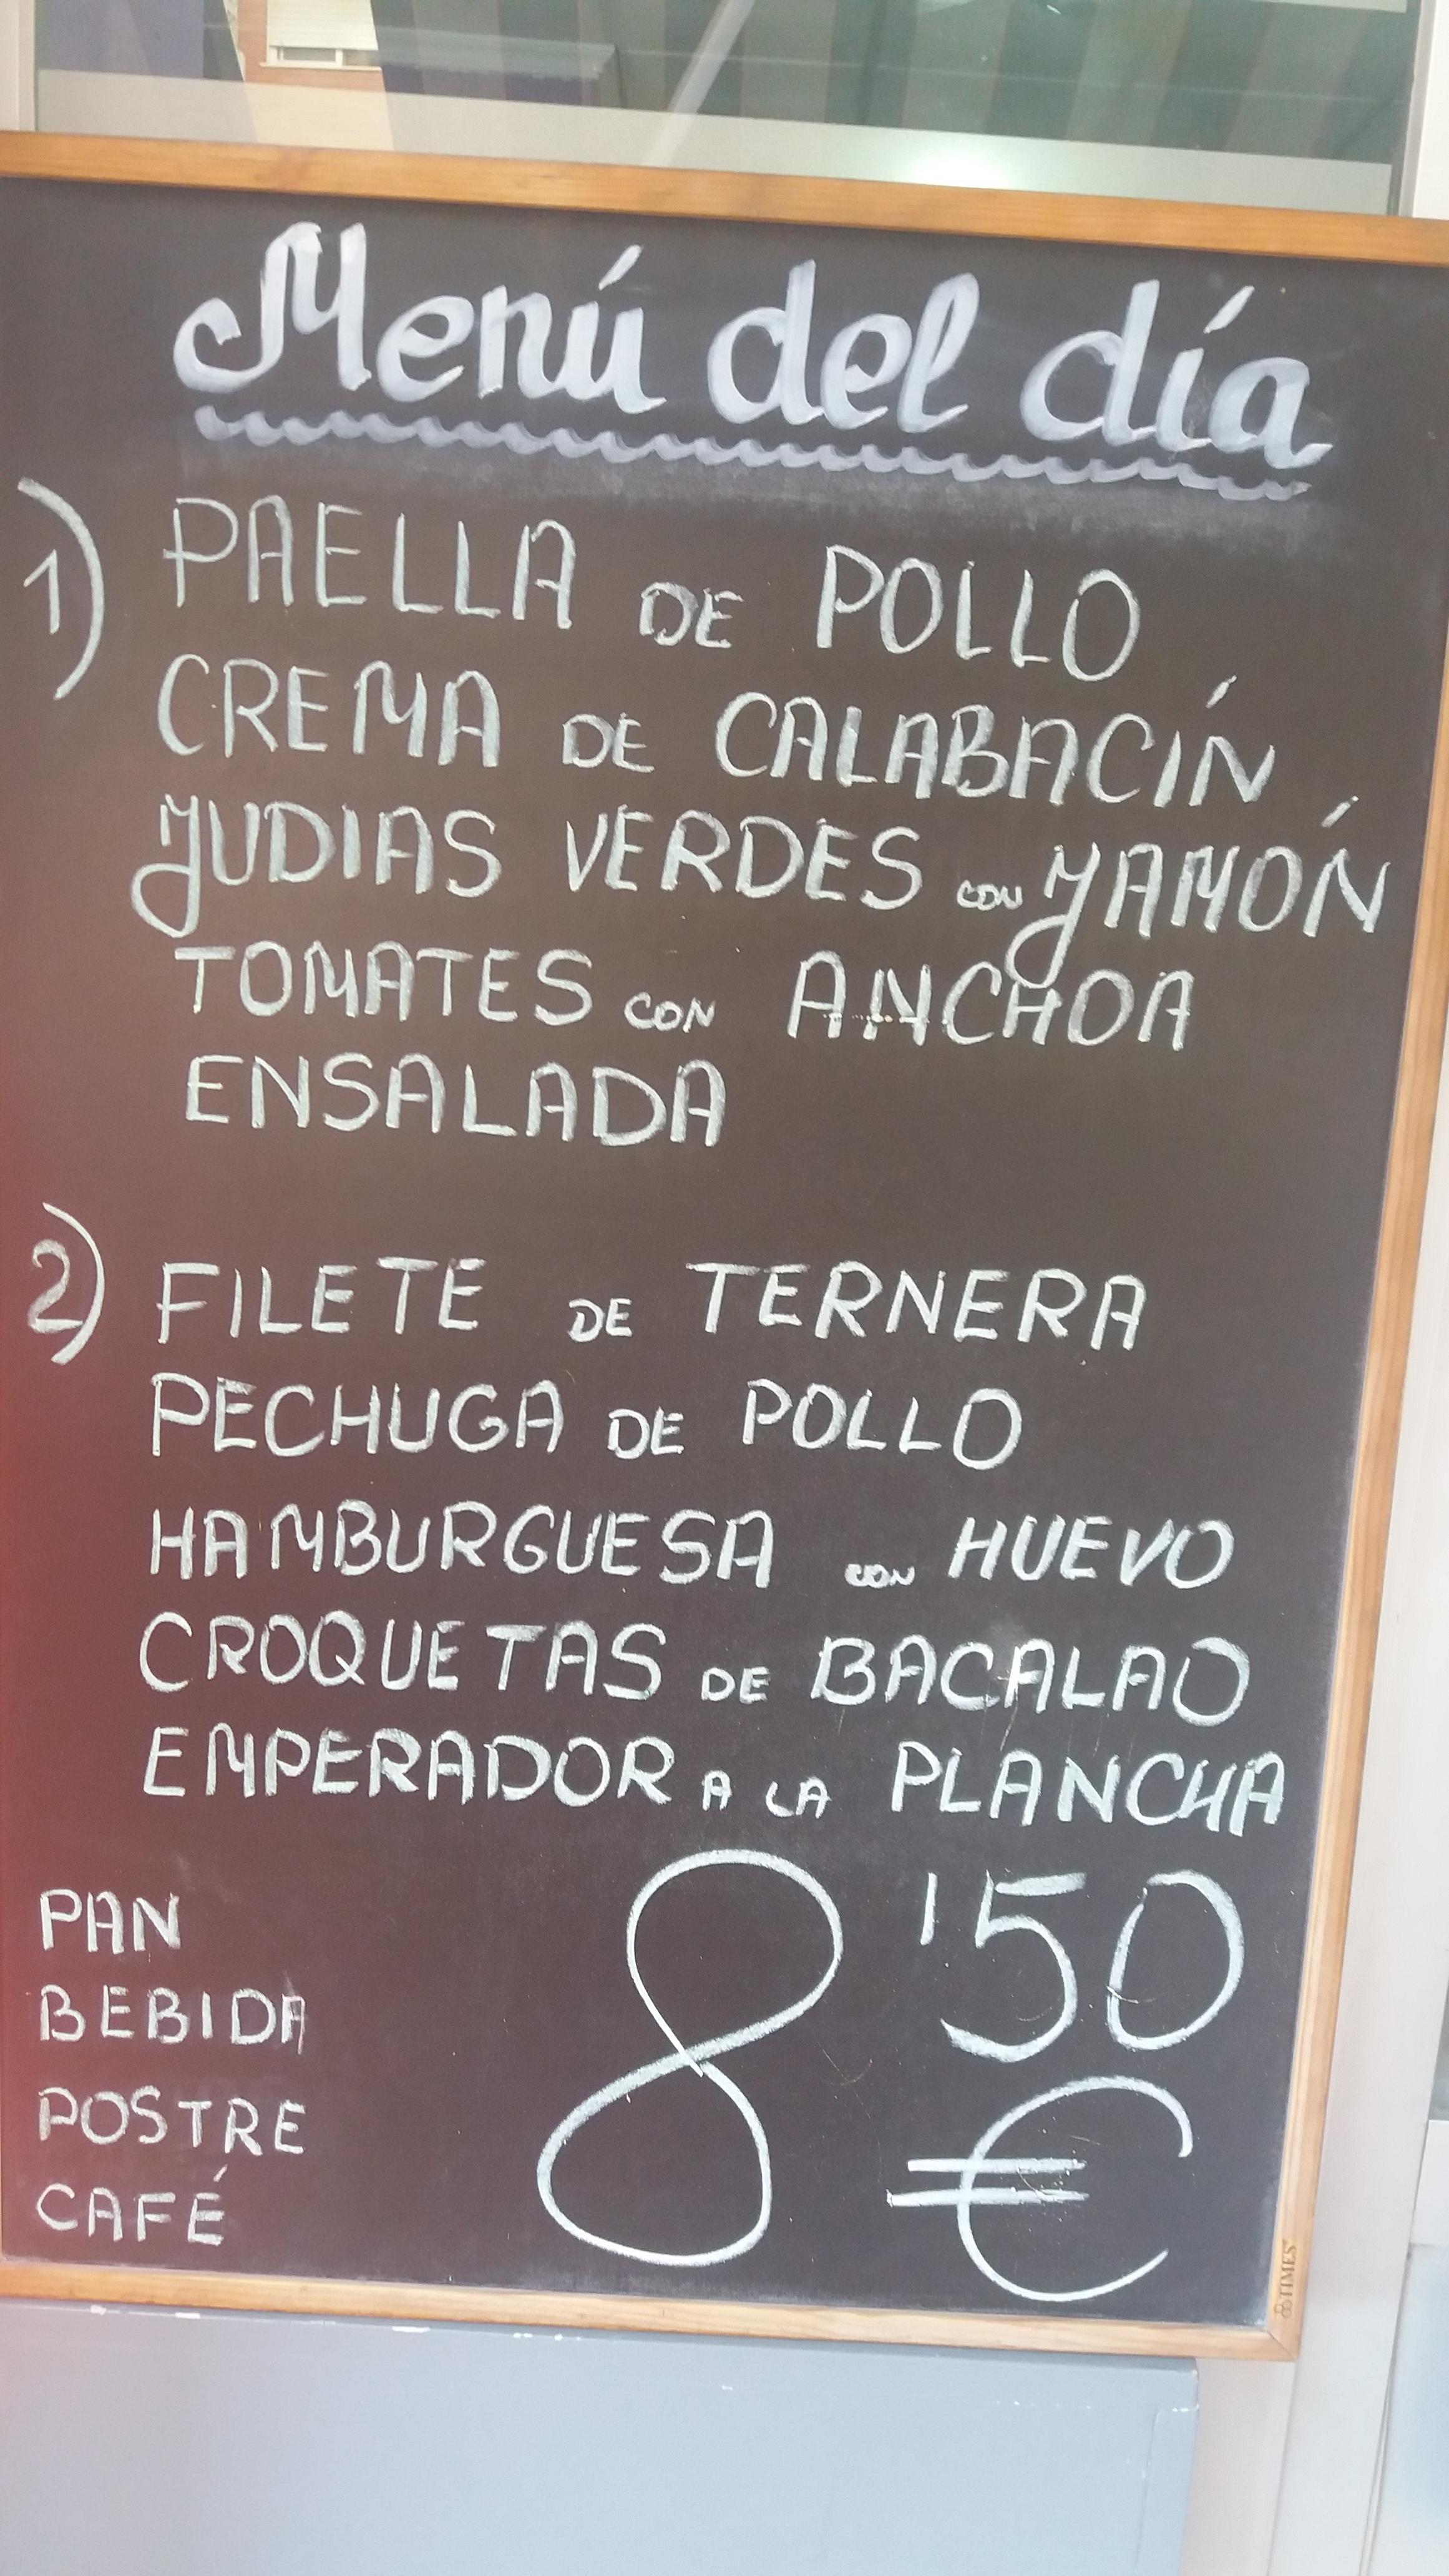 Menú del día
1) PAELLA DE POLLO
CREMA DE CALABACÍN
JUDIAS VERDES CON JAMÓN
TOMATES CON ANCHOA
ENSALADA
2) FILETE DE TERNERA
PECHUGA DE POLLO
HAMBURGUESA CON HUEVO
CROQUETAS DE BACALAO
EMPERADOR A LA PLANCHA
PAN
BEBIDA
POSTRE
CAFÉ
8'50 €
TIMES